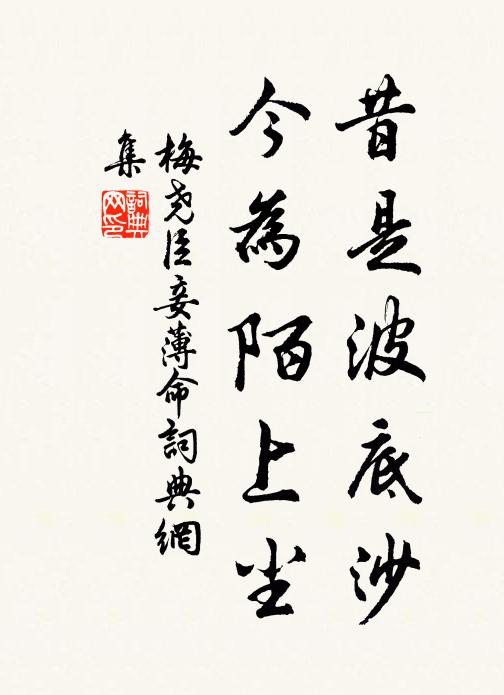 昔是波底沙
今為陌上尘
梅尧臣妾薄命詞典網
集
詞典
网印